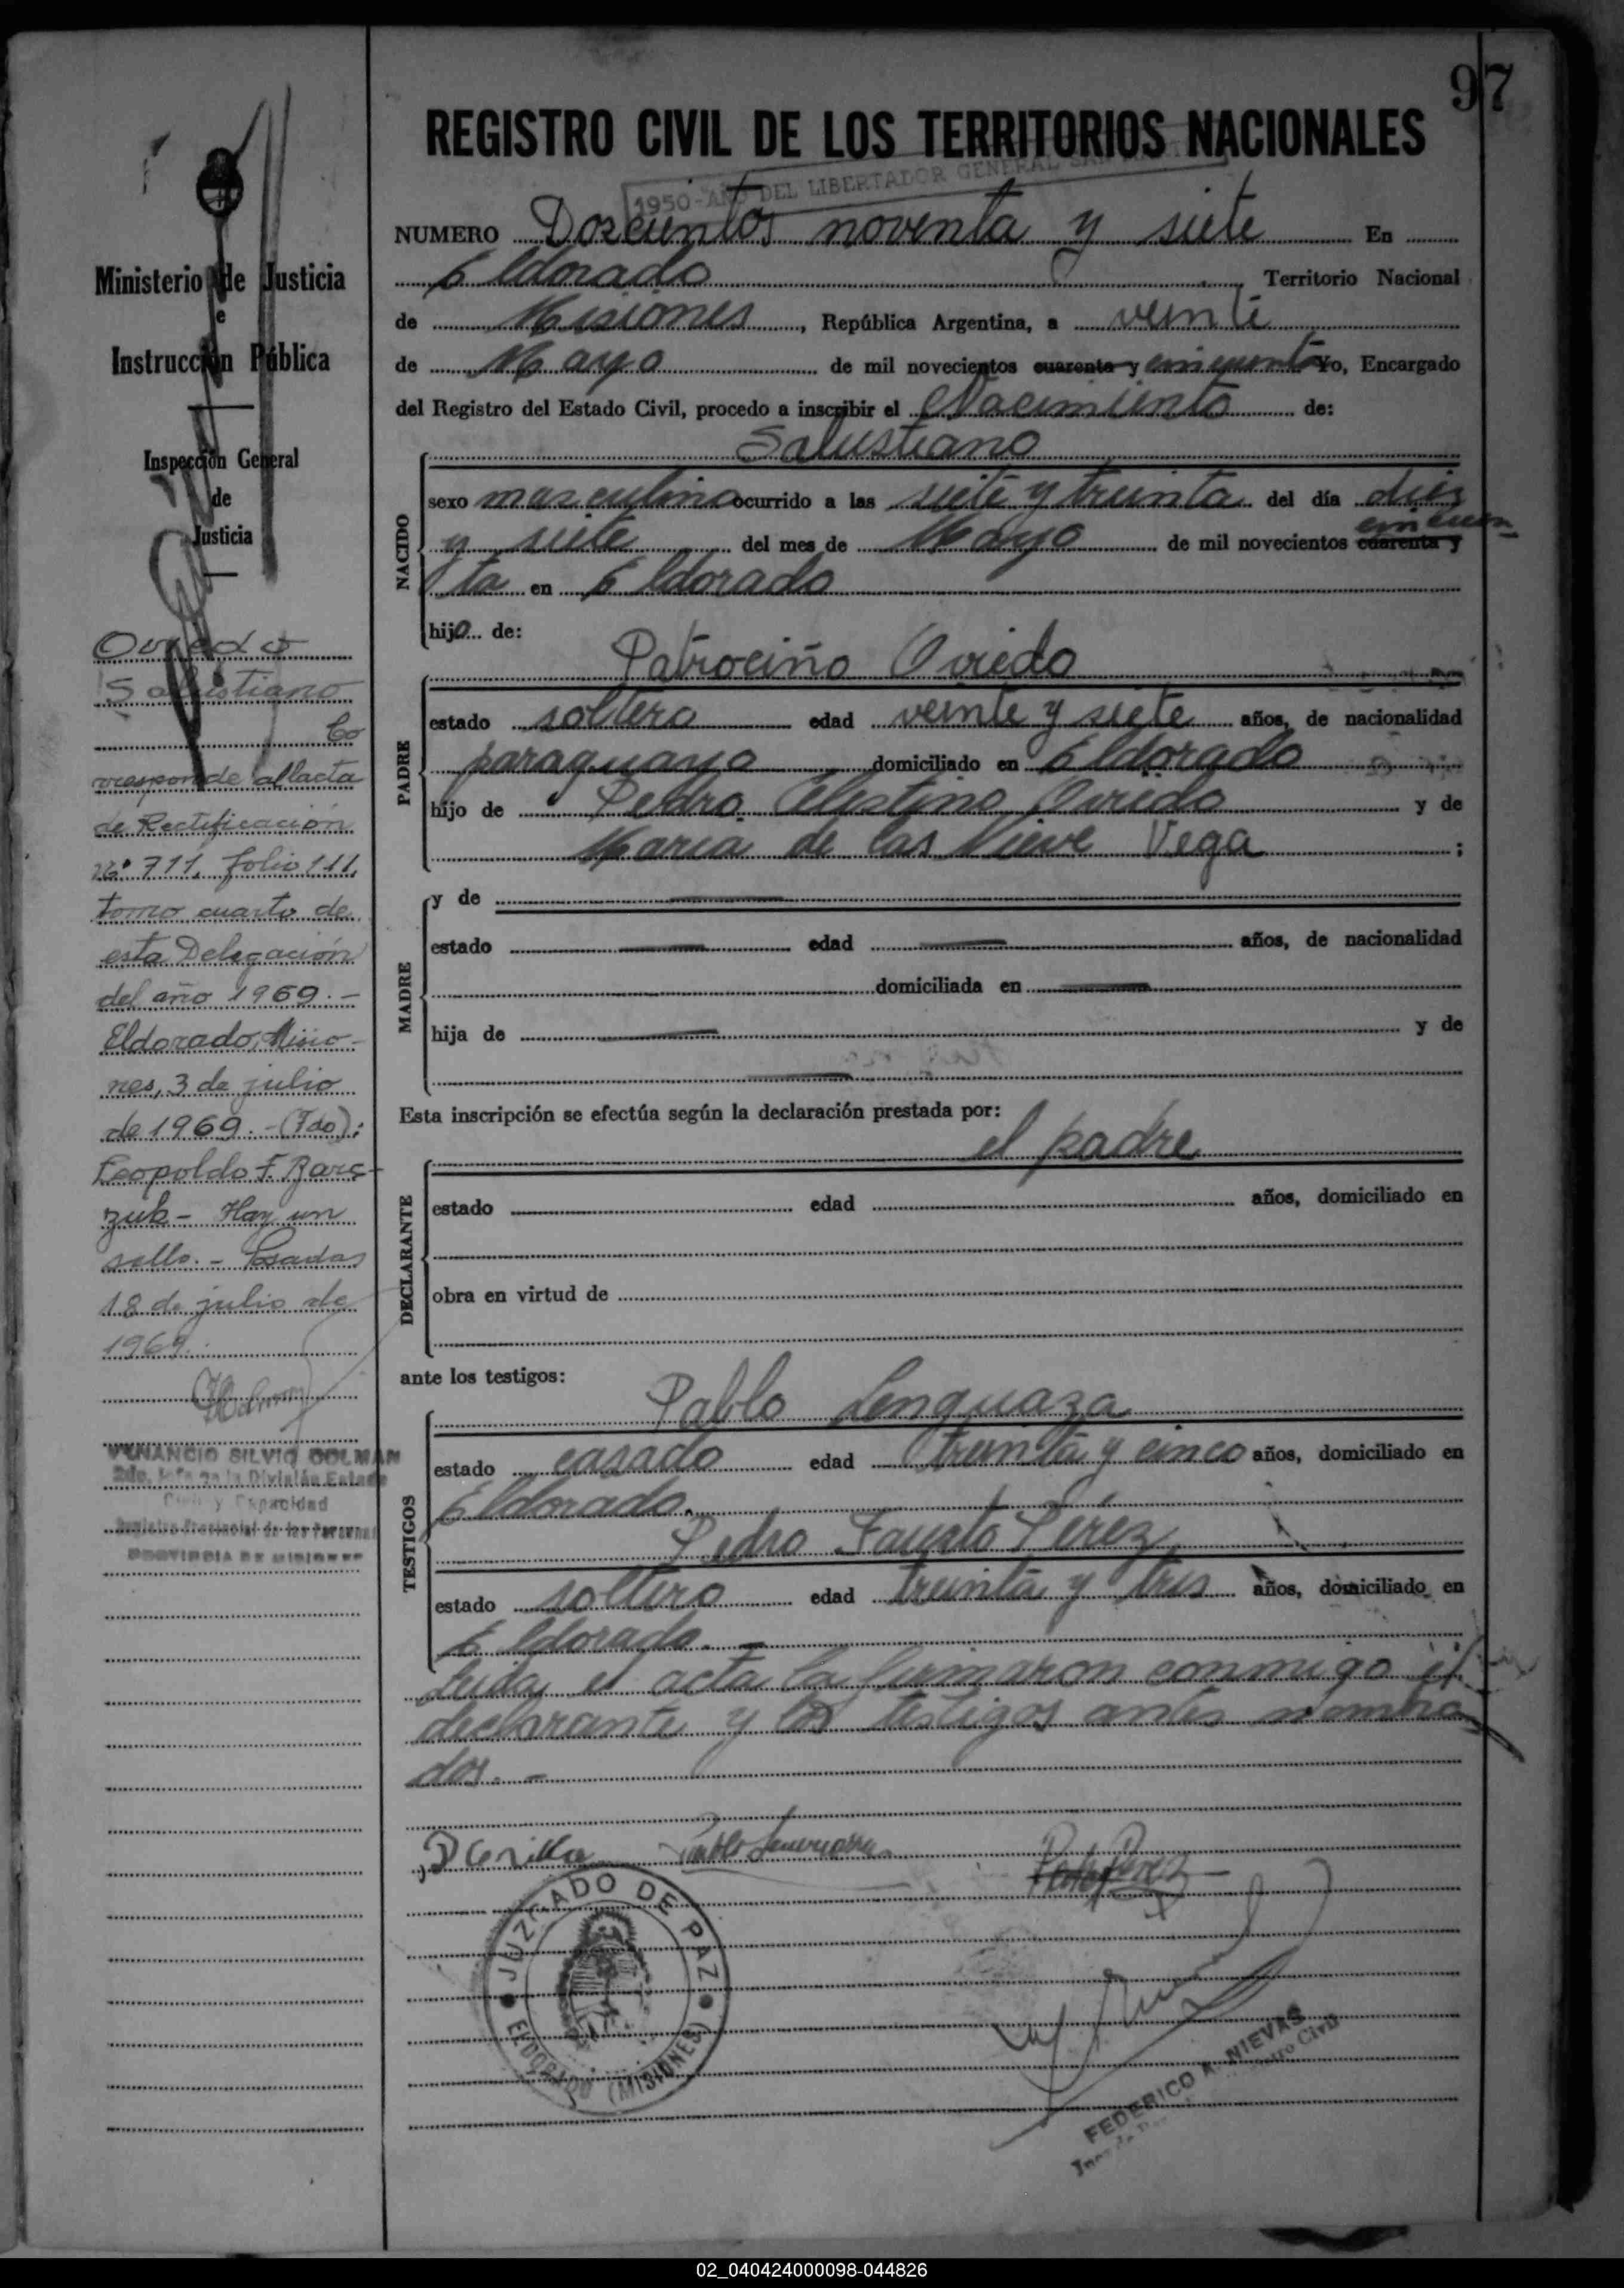 97
REGISTRO CIVIL DE LOS TERRITORIOS NACIONALES
1950-AÑO DEL LIBERTADOR GENERAL SAN
NUMERO Doscientos noventa y siete En
Eldorado Territorio Nacional
de Misiones, República Argentina, a veinte
de Mayo de mil novecientos cuarenta y cincuenta Yo, Encargado
del Registro del Estado Civil, procedo a inscribir el Nacimiento de:
Salustiano
NACIDO
sexo masculino ocurrido a las siete y treinta del día diez
y siete del mes de Mayo de mil novecientos cuarenta y cincuen
ta en Eldorado
hijo de:
Patrociño Oviedo
PADRE
estado soltero edad veinte y siete años, de nacionalidad
paraguayo domiciliado en Eldorado
hijo de Pedro Celestino Oviedo y de
Maria de las Nieve Vega ;
MADRE
y de
estado edad años, de nacionalidad
domiciliada en
hija de y de
Esta inscripción se efectúa según la declaración prestada por:
el padre
DECLARANTE
estado edad años, domiciliado en
obra en virtud de
ante los testigos:
Pablo Lenguaza
TESTIGOS
estado casado edad treinta y cinco años, domiciliado en
Eldorado.
Pedro Fausto Pérez
estado soltero edad treinta y tres años, domiciliado en
Eldorado. -
Leida el acta la firmaron conmigo el
declarante y los testigos antes nombra
dos. -
JUZGADO DE PAZ
ELDORADO (MISIONES)
FEDERICO A. NIEVAS
Ministerio de Justicia
e
Instrucción Pública
Inspección General
de
Justicia
Oviedo
Salustiano
Co
rresponde al acta
de Rectificación
nº 711, folio 111,
tomo cuarto de
esta Delegación
del año 1969.-
Eldorado, Misio-
nes, 3 de julio
de 1969.-(Fdo):
Leopoldo F. Barc-
zuk - Hay un
sello. - Posadas
18 de julio de
1969.
VENANCIO SILVIO DOLMAN
2do. Jefe de la División Estado
Civil y Capacidad
Registro Provincial de las Personas
PROVINCIA DE MISIONES
02_040424000098-044826